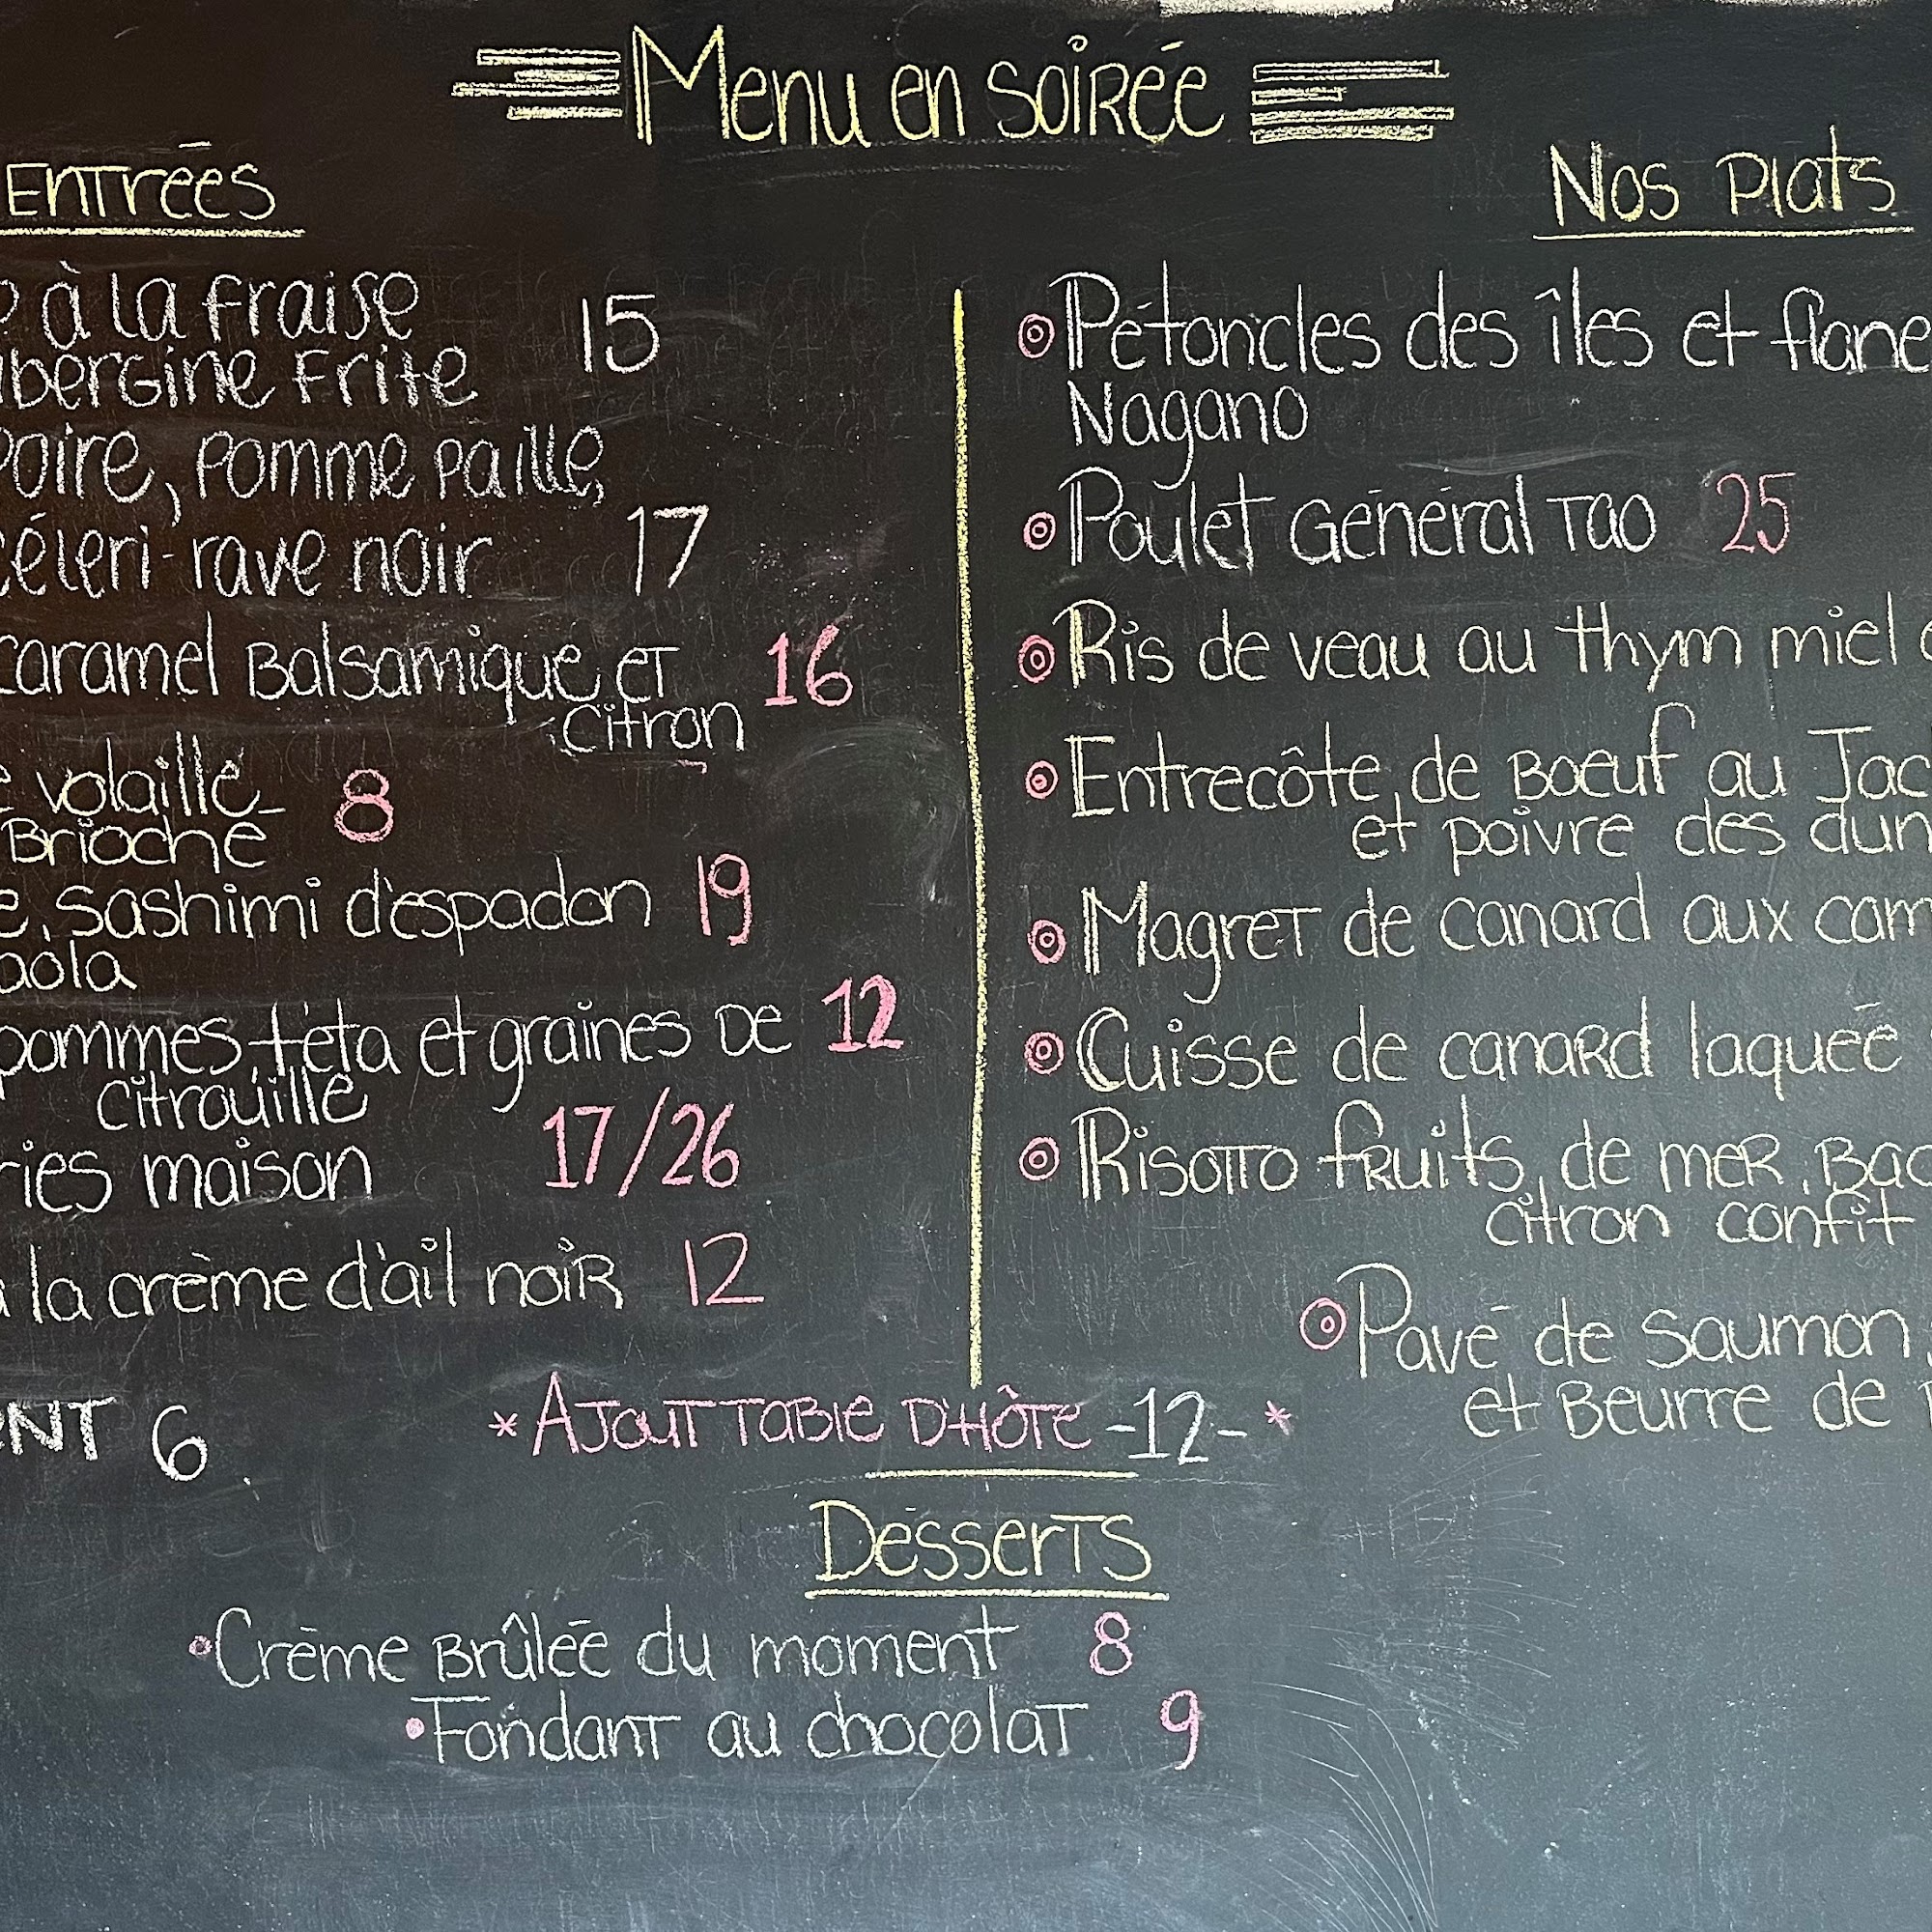 Menu en soirée
Entrées
à la fraise
15
bergine Frite
oire, pomme paille,
céleri-rave noir 17
Caramel Balsamique et 16
citron
volaille 8
Brioche
sashimi d'espadon 19
aola
pommes, féta et graines de 12
citrouille
ries maison 17/26
la crème d'ail noir 12
NT 6
Nos plats
Pétoncles des îles et flane
Nagano
Poulet Général Tao 25
Ris de veau au thym miel
Entrecôte de Boeuf au Jac
et poivre des dun
Magret de canard aux cam
Cuisse de canard laquée
Risotto fruits de mer, Bac
citron confit
Pavé de saumon,
et Beurre de
*Ajout table d'hôte -12- *
Desserts
Crème Brûlée du moment 8
Fondant au chocolat 9